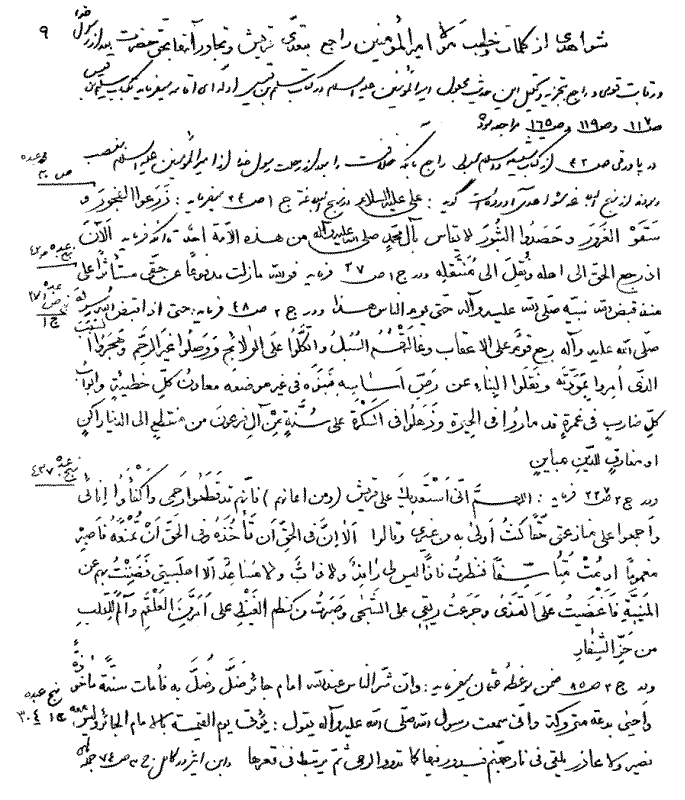 ۹
شواهدی از کلمات و خطب مولا امیرالمؤمنین راجع بتعدّی قریش و تجاوز آنها بحق حضرت بعد از رسول خدا
و رقابت قومی و راجع این حدیث مجعول امیرالمؤمنین علیه السلام در کتاب سلیم بن قیس
ص ۱۱۷ و ص ۱۱۹ و ص ۱۶۵ مراجعه شود
در پاورقی ص ۴۲ از کتاب شیعه و اسلام سبطی راجع باینکه خلافت را بعد از رحلت رسول خدا از امیرالمؤمنین علیه السلام بغصب
از نهج البلاغه آورده است گوید : علی علیه السلام در نهج البلاغة ج ۱ ص ۲۴ میفرماید : زَرَعوا الفُجورَ و
سَقَوْهُ الغُرورَ وَ حَصَدُوا الثُّبورَ لا یُقاس بآلِ محمّدٍ صلی الله علیه وآله من هذه الاُمّة احدٌ تا آنکه فرماید اَلآنَ
اذ رجع الحق الی اهله و نُقِلَ الی مُنْتَقَلِه و در ج ۱ ص ۳۷ فرماید فوالله مازلت مدفوعاً عن حقّی مستأثراً علیّ
منذ قبض الله نبیّه صلی الله علیه وآله حتی یوم الناس هذا و در ج ۲ ص ۴۸ فرماید : حتی اذا قبض الله رسوله
صلی الله علیه وآله رجع قومٌ علی الاعقاب وغالَتْهُمُ السُّبُلُ واتَّکَلُوا عَلَی الوَلائِجِ وَوَصَلُوا غیرَ الرَّحِمِ وَ هَجَرُوا السَّبَبَ
الذی اُمِروا بِمَوَدَّتِه وَنَقَلُوا البِناءَ عن رَصِّ اَساسِه فَبَنَوْهُ فی غیر موضعه معادنُ کلِّ خطیئةٍ وابوابُ
کلِّ ضاربٍ فی غَمْرَةٍ قد مارُوا فی الحَیْرَةِ وَ ذَهَلُوا فی السَّکْرَةِ علی سُنَّةٍ مِنْ آلِ فرعونَ من منقطعٍ الی الدنیا راکنٍ
او مفارقٍ للدّینِ مباینٍ
و در ج ۲ ص ۲۲۷ فرماید : اللهمَّ اِنّی اَسْتَعْدیکَ علی قریش (ومن اعانهم) فانّهم قد قَطَعوا رَحِمی واَکْفَأوا اِنائی
واَجمَعوا علی منازعتی حَقّاً کُنتُ اَولی به من غیری وقالوا اَلا اِنَّ فی الحقّ اَن تَأخُذَهُ وفی الحقّ اَنْ تُمْنَعَهُ فَاصبِر
مغموماً اَو مُتْ مُتَأسِّفاً فنظرتُ فاذاً لیس لی رافِدٌ ولا ذابٌّ ولا مساعدٌ الّا اهلَ بیتی فَضَنَنْتُ بهم عن
المَنِیَّةِ فَاَغْضَیْتُ عَلَی القَذی وَجَرَعْتُ ریقی علی الشَّجی وَصَبَرْتُ من کَظْمِ الغَیْظِ علی اَمَرَّ مِنَ العَلْقَمِ وَآلَمَ لِلقَلبِ
من حَزِّ الشِّفارِ
و در ج ۲ ص ۸۵ ضمن موعظهٔ عثمان میفرماید : وانّ شرّ الناس عندالله امام جائر ضَلَّ وَضُلَّ به فاَمات سنّةً مأخوذةً
واَحیی بدعة متروکة وانّی سمعت رسول الله صلی الله علیه وآله یقول : یُؤتی یوم القیمة بالامام الجائر ولیس معه
نصیر ولا عاذر یلقی فی نار جهنّم فیدور فیها کما تدور الرحی ثم یرتبط فی قعرها وابن اثیر در کامل ج ۳ ص ۷۴
عبده
ص ۳۰
عبده
عبده
ص ۳۷
ج ۱
نهج عبده
۴۳۷
نهج عبده
ج ۱ ۳۰۴